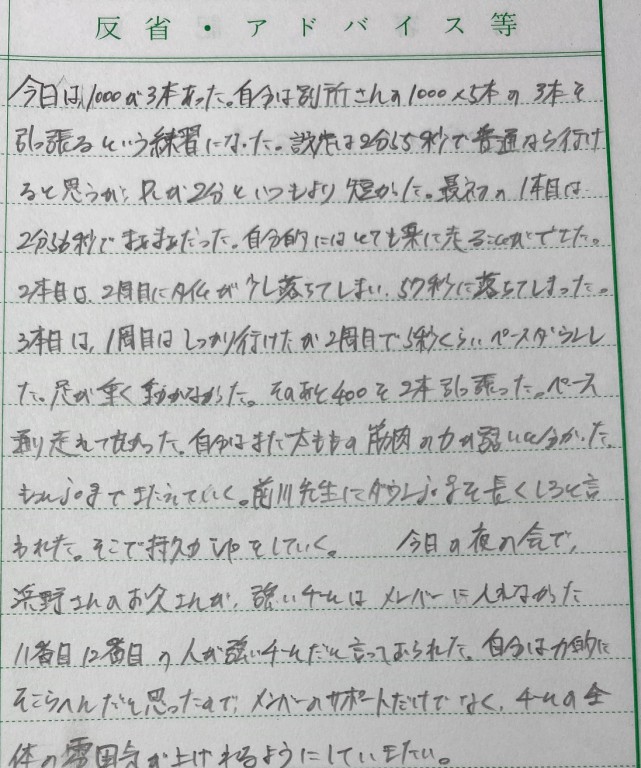 反省・アドバイス等
今日は、1000が3本あった。自分は別所さんの1000×5本の3本を
引っ張るという練習になった。設定は2分55秒で普通なら行け
ると思うが、Rが2分といつもより短かった。最初の1本目は
2分56秒でまあまあだった。自分的にはとても楽に走ることができた。
2本目は、2周目にタイムが少し落ちてしまい、57秒に落ちてしまった。
3本目は、1周目はしっかり行けたが2周目で5秒くらいペースダウンし
た。足が重く動かなかった。そのあと400を2本引っ張った。ペース
通り走れて良かった。自分はまだ太ももの筋肉の力が弱いと分かった。
jogできたえていく。前川先生にダウンjogを長くしろと言
われた。そこで持久力upをしていく。 今日の夜の会で、
浜野さんのお父さんが、強いチームはメンバーに入れなかった
11番目12番目の人が強いチームだと言っておられた。自分は力的に
そこらへんだと思ったので、メンバーのサポートだけでなく、チームの全
体の雰囲気が上げれるようにしていきたい。